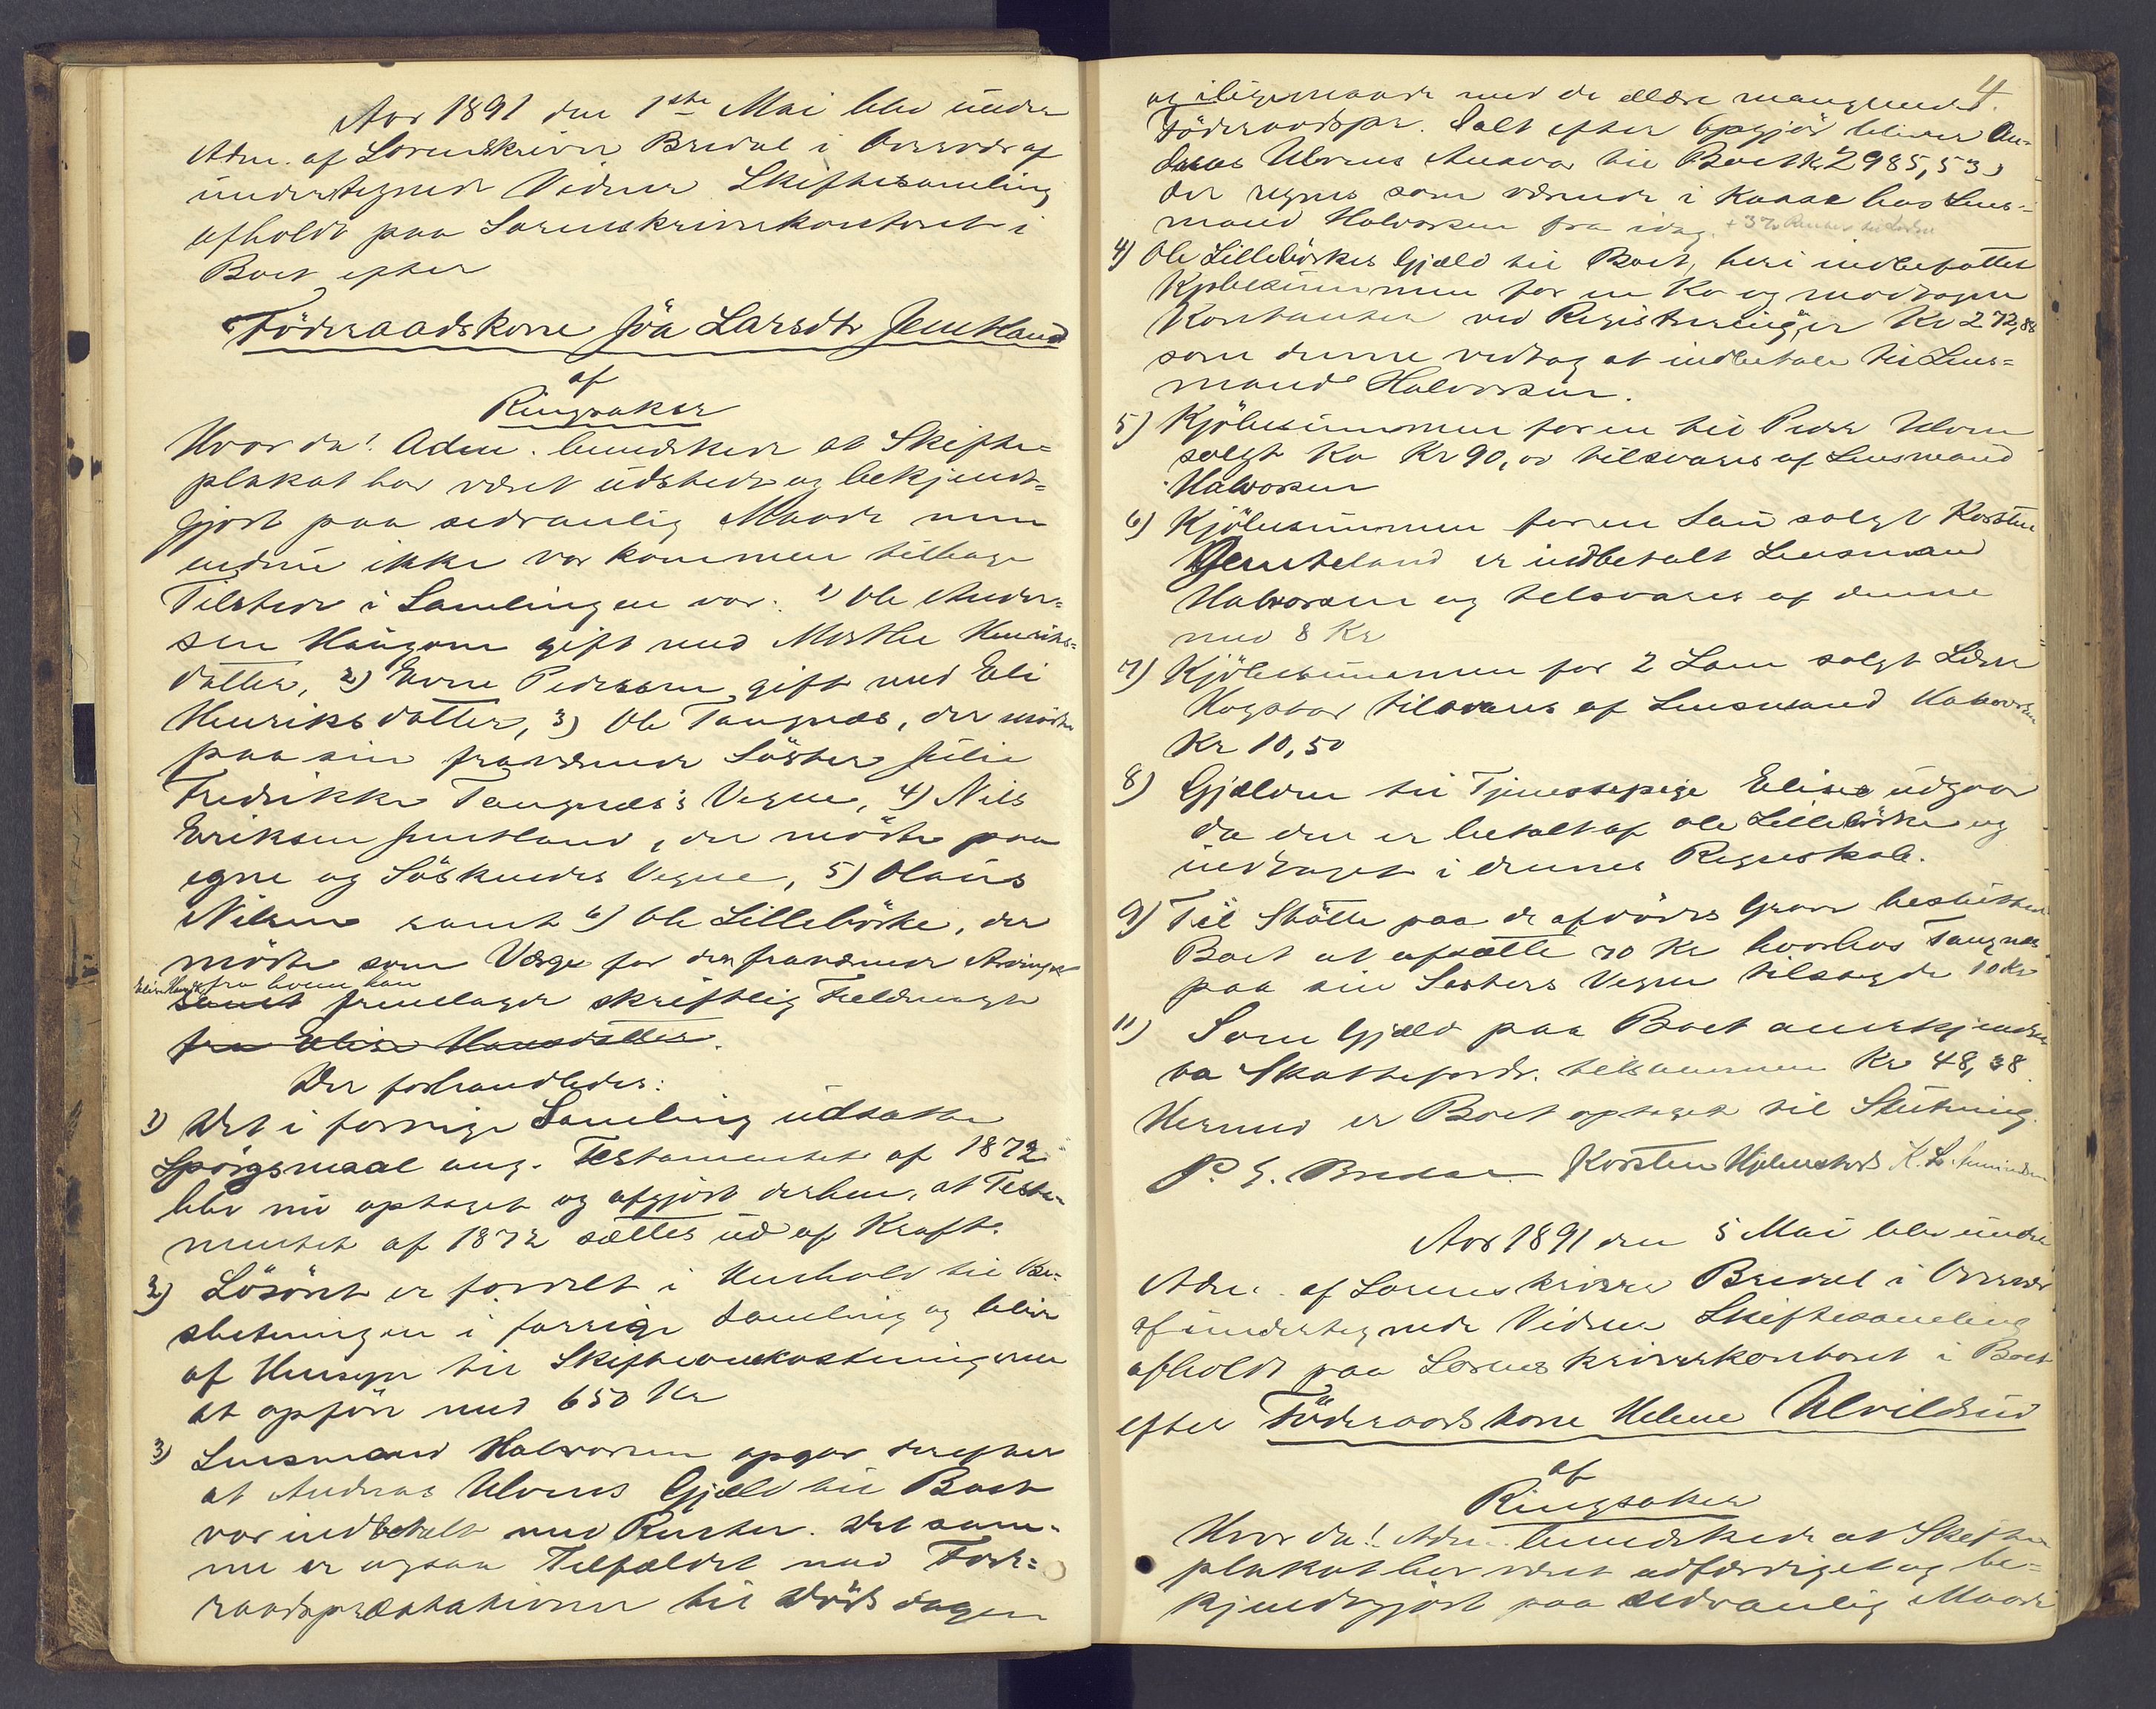 Aar 1891 den 1ste Mai blev under
Adm. af Sorenskriver Bredal i Overvær af
undertegnede Vidner Skiftesamling
afholdt paa Sorenskriverkontoret i
Boet efter
Föderaadskone Jöa Larsdtr Jemtland
af
Ringsaker
Hvorda! Adm. bemærkede at Skifte=
plakat har været udstedt og bekjendt=
gjort paa sedvanlig Maade men
endnu ikke var kommen tilbage
Tilstede i Samlingen var: 1) Ole Ander=
sen Haugom gift med Marthe Henriks=
datter, 2) Even Pedersen gift med Eli
Henriksdatter, 3) Ole Tangnæs, der mödte
paa sin fraværende Söster Julie
Fredrikke Tangnæs's Vegne, 4) Nils
Eriksen Jemtland, der mödte paa
egne og Söskendes Vegne, 5) Olaus
Nilsen samt 6) Ole Lillebörke, der
mödte som Værge for den fraværende Arving
fra hvem han
samt fremlagde skriftlig Fuldmagt
fra Elise Hansdatter.
Der forhandledes:
1) Det i forrige Samling udsatte
Spörgsmaal ang. Testamentet af 1872
blev nu optaget og afgjort derhen, at Testa=
mentet af 1872 sættes ud af Kraft.
2) Lösöret er fordelt i Henhold til Be=
slutningen i forrige Samling og bliver
af Hensyn til Skifteomkostningerne
at opföre med 650 Kr
3) Lensmand Halvorsen opgav derefter
at Andreas Ulvens Gjæld til Boet
var indbetalt med Renter. Det sam=
me er ogsaa Tilfældet med Föde=
raadspræstationer til Dödsdagen
4.
og iligemaade med de ældre manglende
Föderaadspr. Ialt efter Opgjör bliver An=
dreas Ulvens Ansvar til Boet Kr 2985,53,
der regnes som værende i Kassa hos Lens=
mand Halvorsen fra idag. + 3%
4) Ole Lillebörkes Gjæld til Boet, heri indbefattet
Kjöbesummen for en Ko og modtagne
Kontanter ved Registrering, er Kr 272,88
som denne vedtog at indbetale til Lens=
mand Halvorsen.
5) Kjöbesummen for en til Peder Ulven
solgt Ko Kr 90,00 tilsvares af Lensmand
Halvorsen
6) Kjöbesummen for en Sau solgt Karsten
Jemteland er indbetalt Lensmand
Halvorsen og tilsvares af denne
med 8 Kr
7) Kjöbesummen for 2 Lam solgt
tilsvares af Lensmand Halvorsen
Kr 10,50
8) Gjælden til Tjenestepige Elise udgaar
da den er betalt af Ole Lillebörke og
indtaget i dennes Regnskab.
9) Til Stötte paa de afdödes Grav besluttede
Boet at afsætte 70 Kr hvorhos Tangnæs
paa sin Sösters Vegne tilsagde 10 Kr
11) Som Gjæld paa Boet anerkjendtes
Skattefordr. tilsammen Kr 48,38.
Hermed er Boet optaget til Slutning.
P. S. Bredal Karsten Hjelmstad
Aar 1891 den 5 Mai blev under
Adm. af Sorenskriver Bredal i Overvær
af undertegnede Vidner Skiftesamling
afholdt paa Sorenskriverkontoret i Boet
efter Föderaadskone Helene Ulvildsud
af
Ringsaker
Hvorda! Adm. bemærkede at Skifte
plakat har været udfærdiget og be=
kjendtgjort paa sedvanlig Maade